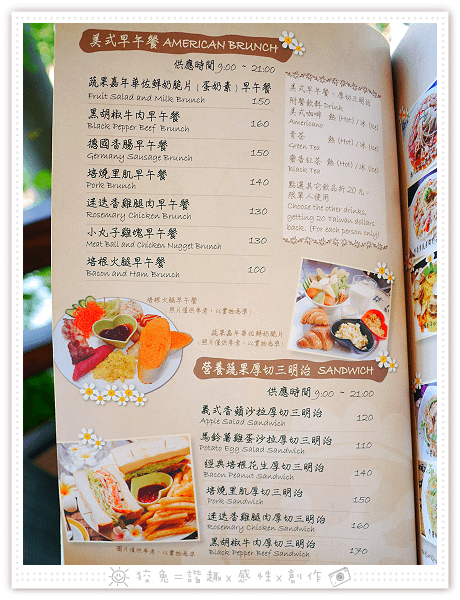 美式早午餐 AMERICAN BRUNCH
供應時間 9:00 ~ 21:00
蔬果嘉年華佐鮮奶脆片(蛋奶素)早午餐
Fruit Salad and Milk Brunch 150
黑胡椒牛肉早午餐
Black Pepper Beef Brunch 160
德國香腸早午餐
Germany Sausage Brunch 150
培燒里肌早午餐
Pork Brunch 140
迷迭香雞腿肉早午餐
Rosemary Chicken Brunch 130
小丸子雞塊早午餐
Meat Ball and Chicken Nugget Brunch 130
培根火腿早午餐
Bacon and Ham Brunch 100
美式早午餐、厚切三明治
附餐飲料 Drink
美式咖啡 熱 (Hot) /冰 (Ice)
Americano
青茶
Green Tea 熱 (Hot) /冰 (Ice)
蜜香紅茶 熱 (Hot) /冰 (Ice)
Black Tea
點選其它飲品折 20 元,
限單人使用
Choose the other drinks,
getting 20 Taiwan dollars
back. (For each person only)
培根火腿早午餐
(照片僅供參考,以實物為準)
蔬果嘉年華佐鮮奶脆片
(照片僅供參考,以實物為準)
營養蔬果厚切三明治 SANDWICH
供應時間 9:00 ~ 21:00
義式香蘋沙拉厚切三明治
Apple Salad Sandwich 120
馬鈴薯雞蛋沙拉厚切三明治
Potato Egg Salad Sandwich 110
經典培根花生厚切三明治
Bacon Peanut Sandwich 140
培燒里肌厚切三明治
Pork Sandwich 150
迷迭香雞腿肉厚切三明治
Rosemary Chicken Sandwich 160
黑胡椒牛肉厚切三明治
Black Pepper Beef Sandwich 170
(圖片僅供參考,以實物為準)
狡兔=諧趣x感性x創作